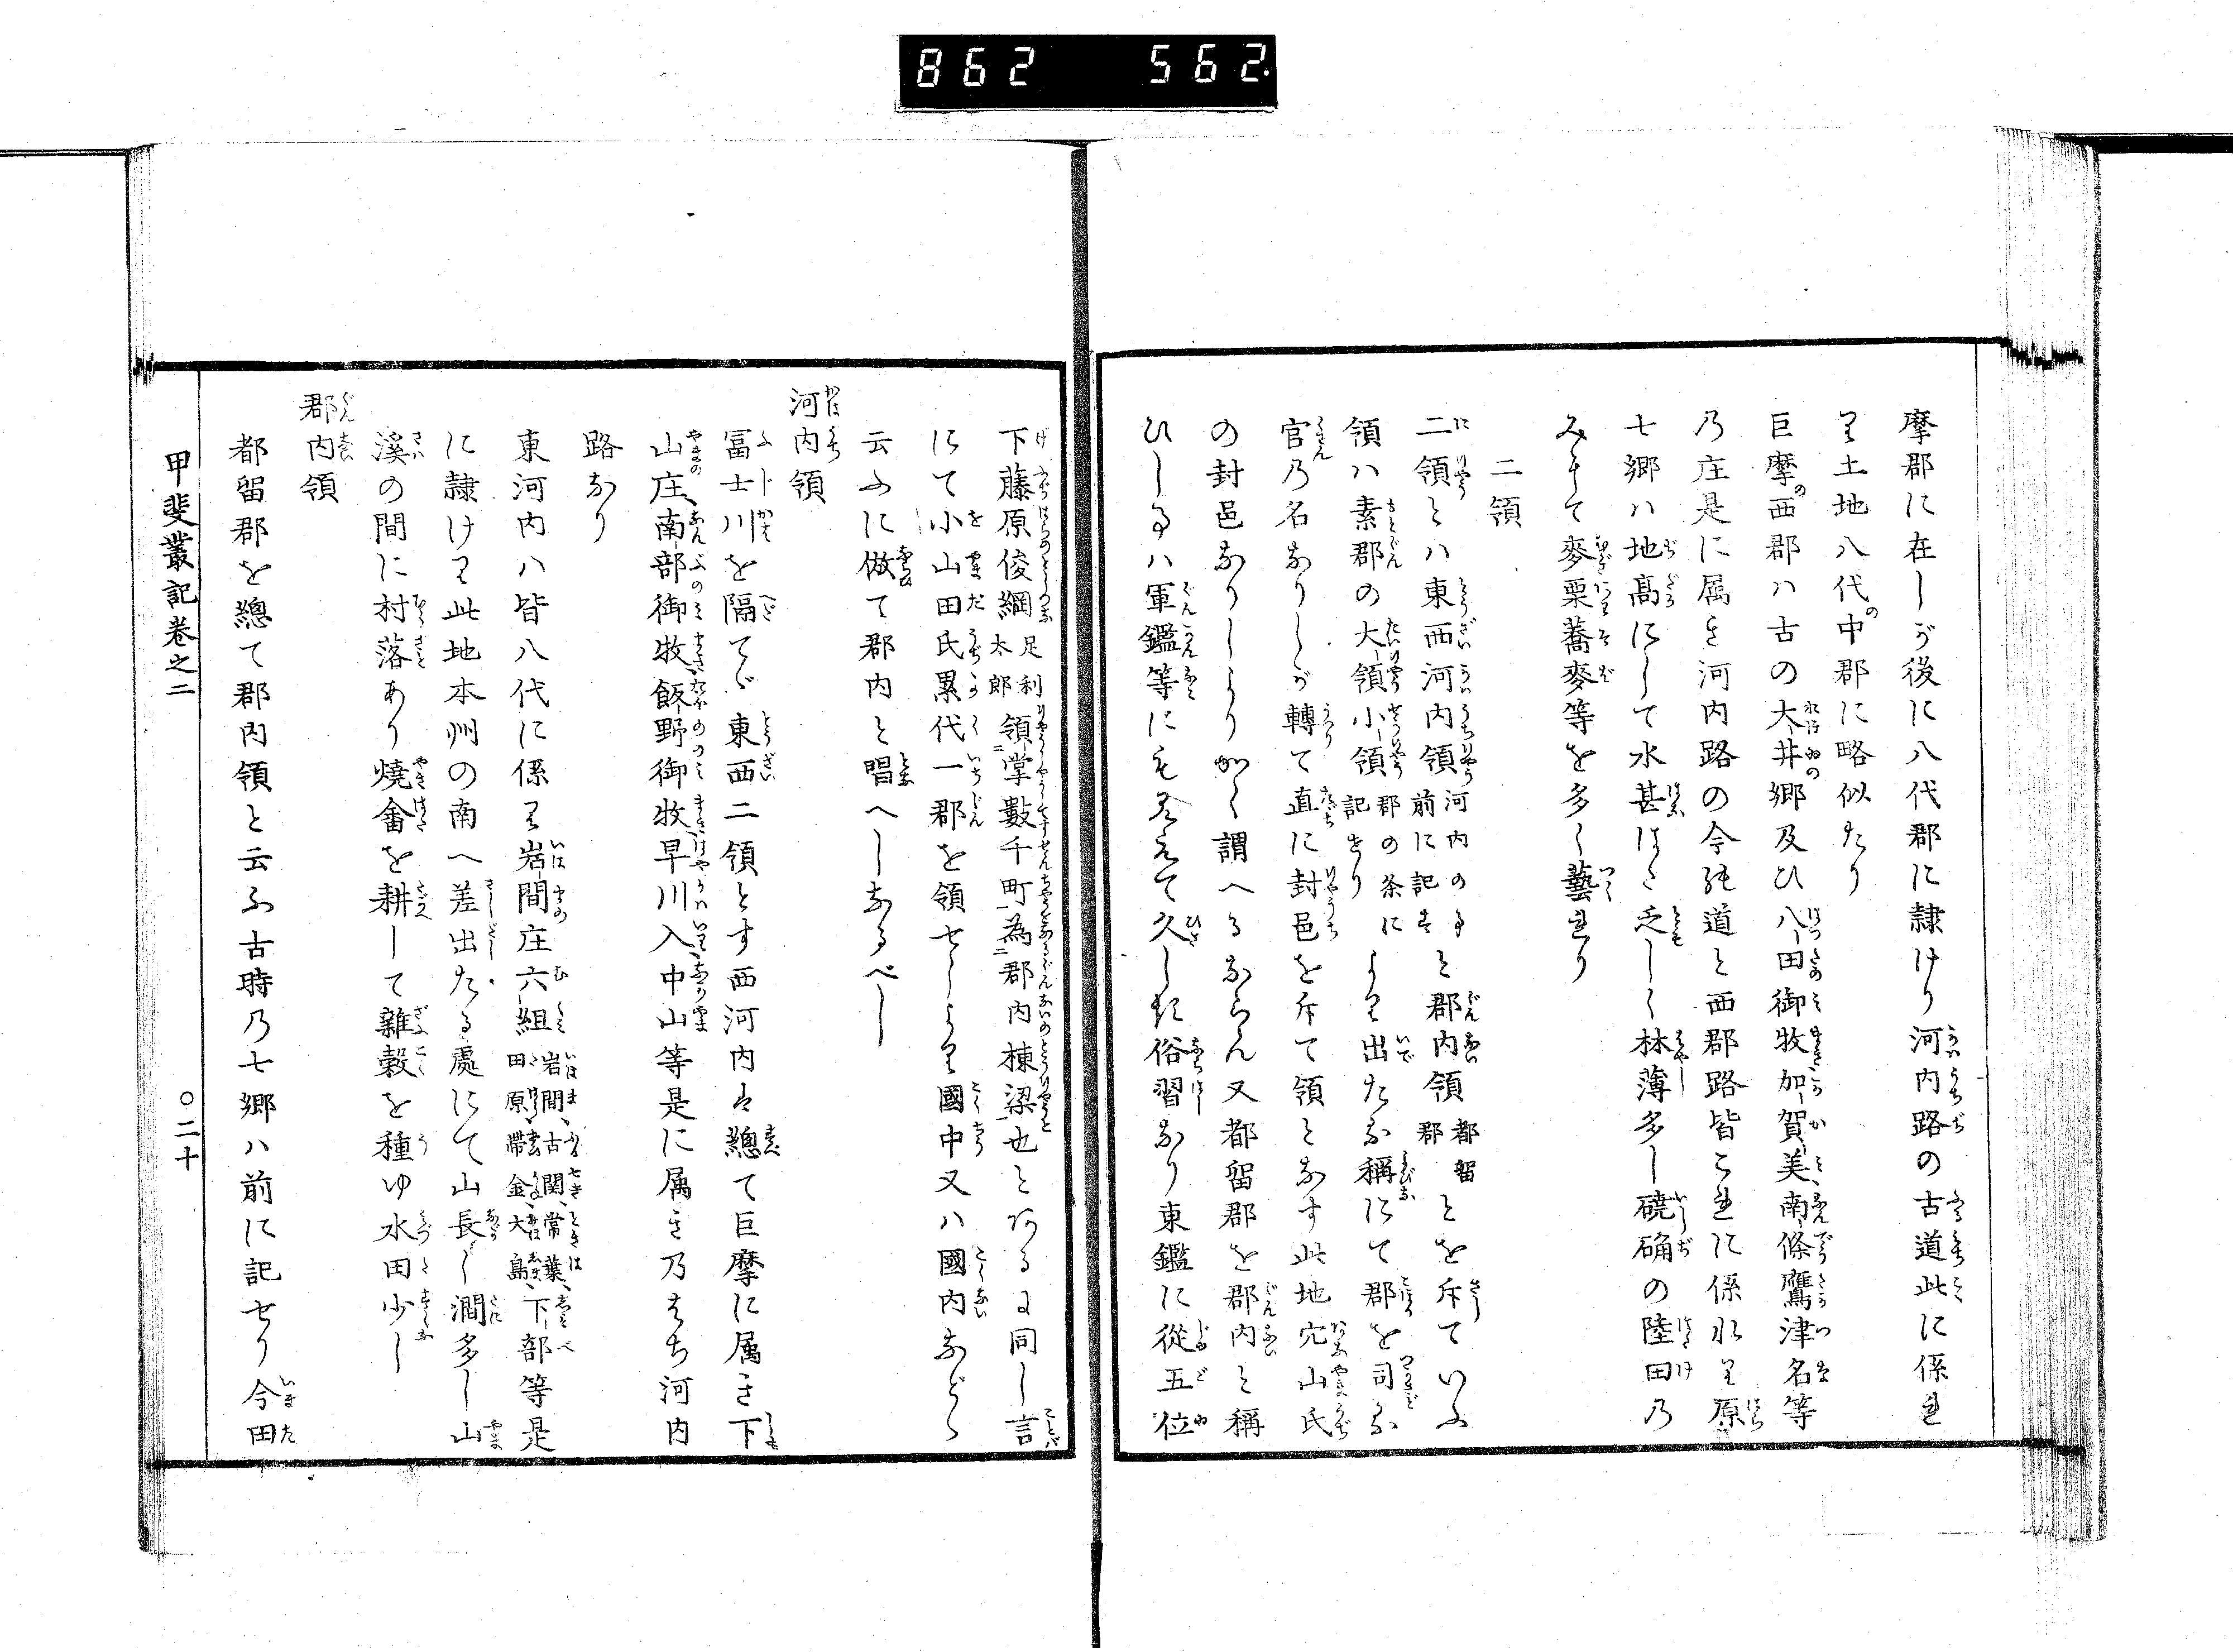 862 562.
摩郡に在しが後に八代郡に隷けり河内路の古道此に係れ
り土地八代の中郡に略似たり
巨摩の西郡ハ古の大井郷及ひ八田御牧加賀美南條鷹津名等
乃庄是に属き河内路の今の道と西郡路皆これに係れり原
七郷ハ地高にして水甚はた乏しく林薄多し磽确の陸田乃
みにて麥粟蕎麥等を多く藝れり
二領
二領とハ東西河内領河内の事前に記すと郡内領都留郡とを斥ていふ
領ハ素郡の大領小領郡の条に記せりより出たる稱にて郡を司る
官乃名なりしが轉て直に封邑を斥て領となす此地穴山氏
の封邑なりしより如く謂へるならん又都留郡を郡内と稱
ひし事ハ軍鑑等にも見えて久しき俗習なり東鑑に從五位
下藤原俊綱足利太郎領掌數千町為郡内棟梁也とあるに同し言
にて小山田氏累代一郡を領せしより國中又ハ國内などゝ
云ふに倣て郡内と唱へしなるべし
河内領
冨士川を隔てゝ東西二領とす西河内は總て巨摩に属き下
山庄、南部御牧、飯野御牧、早川入、中山等是に属き乃ち河内
路なり
東河内ハ皆八代に係り岩間庄六組岩間、古関、常葉、田原、帯金、大島、下部等是
に隷けり此地本州の南へ差出たる處にて山長し澗多し山
溪の間に村落あり燒畬を耕して雜穀を種ゆ水田少し
郡内領
都留郡を總て郡内領と云ふ古時乃七郷ハ前に記せり今田
甲斐叢記卷之二
○二十